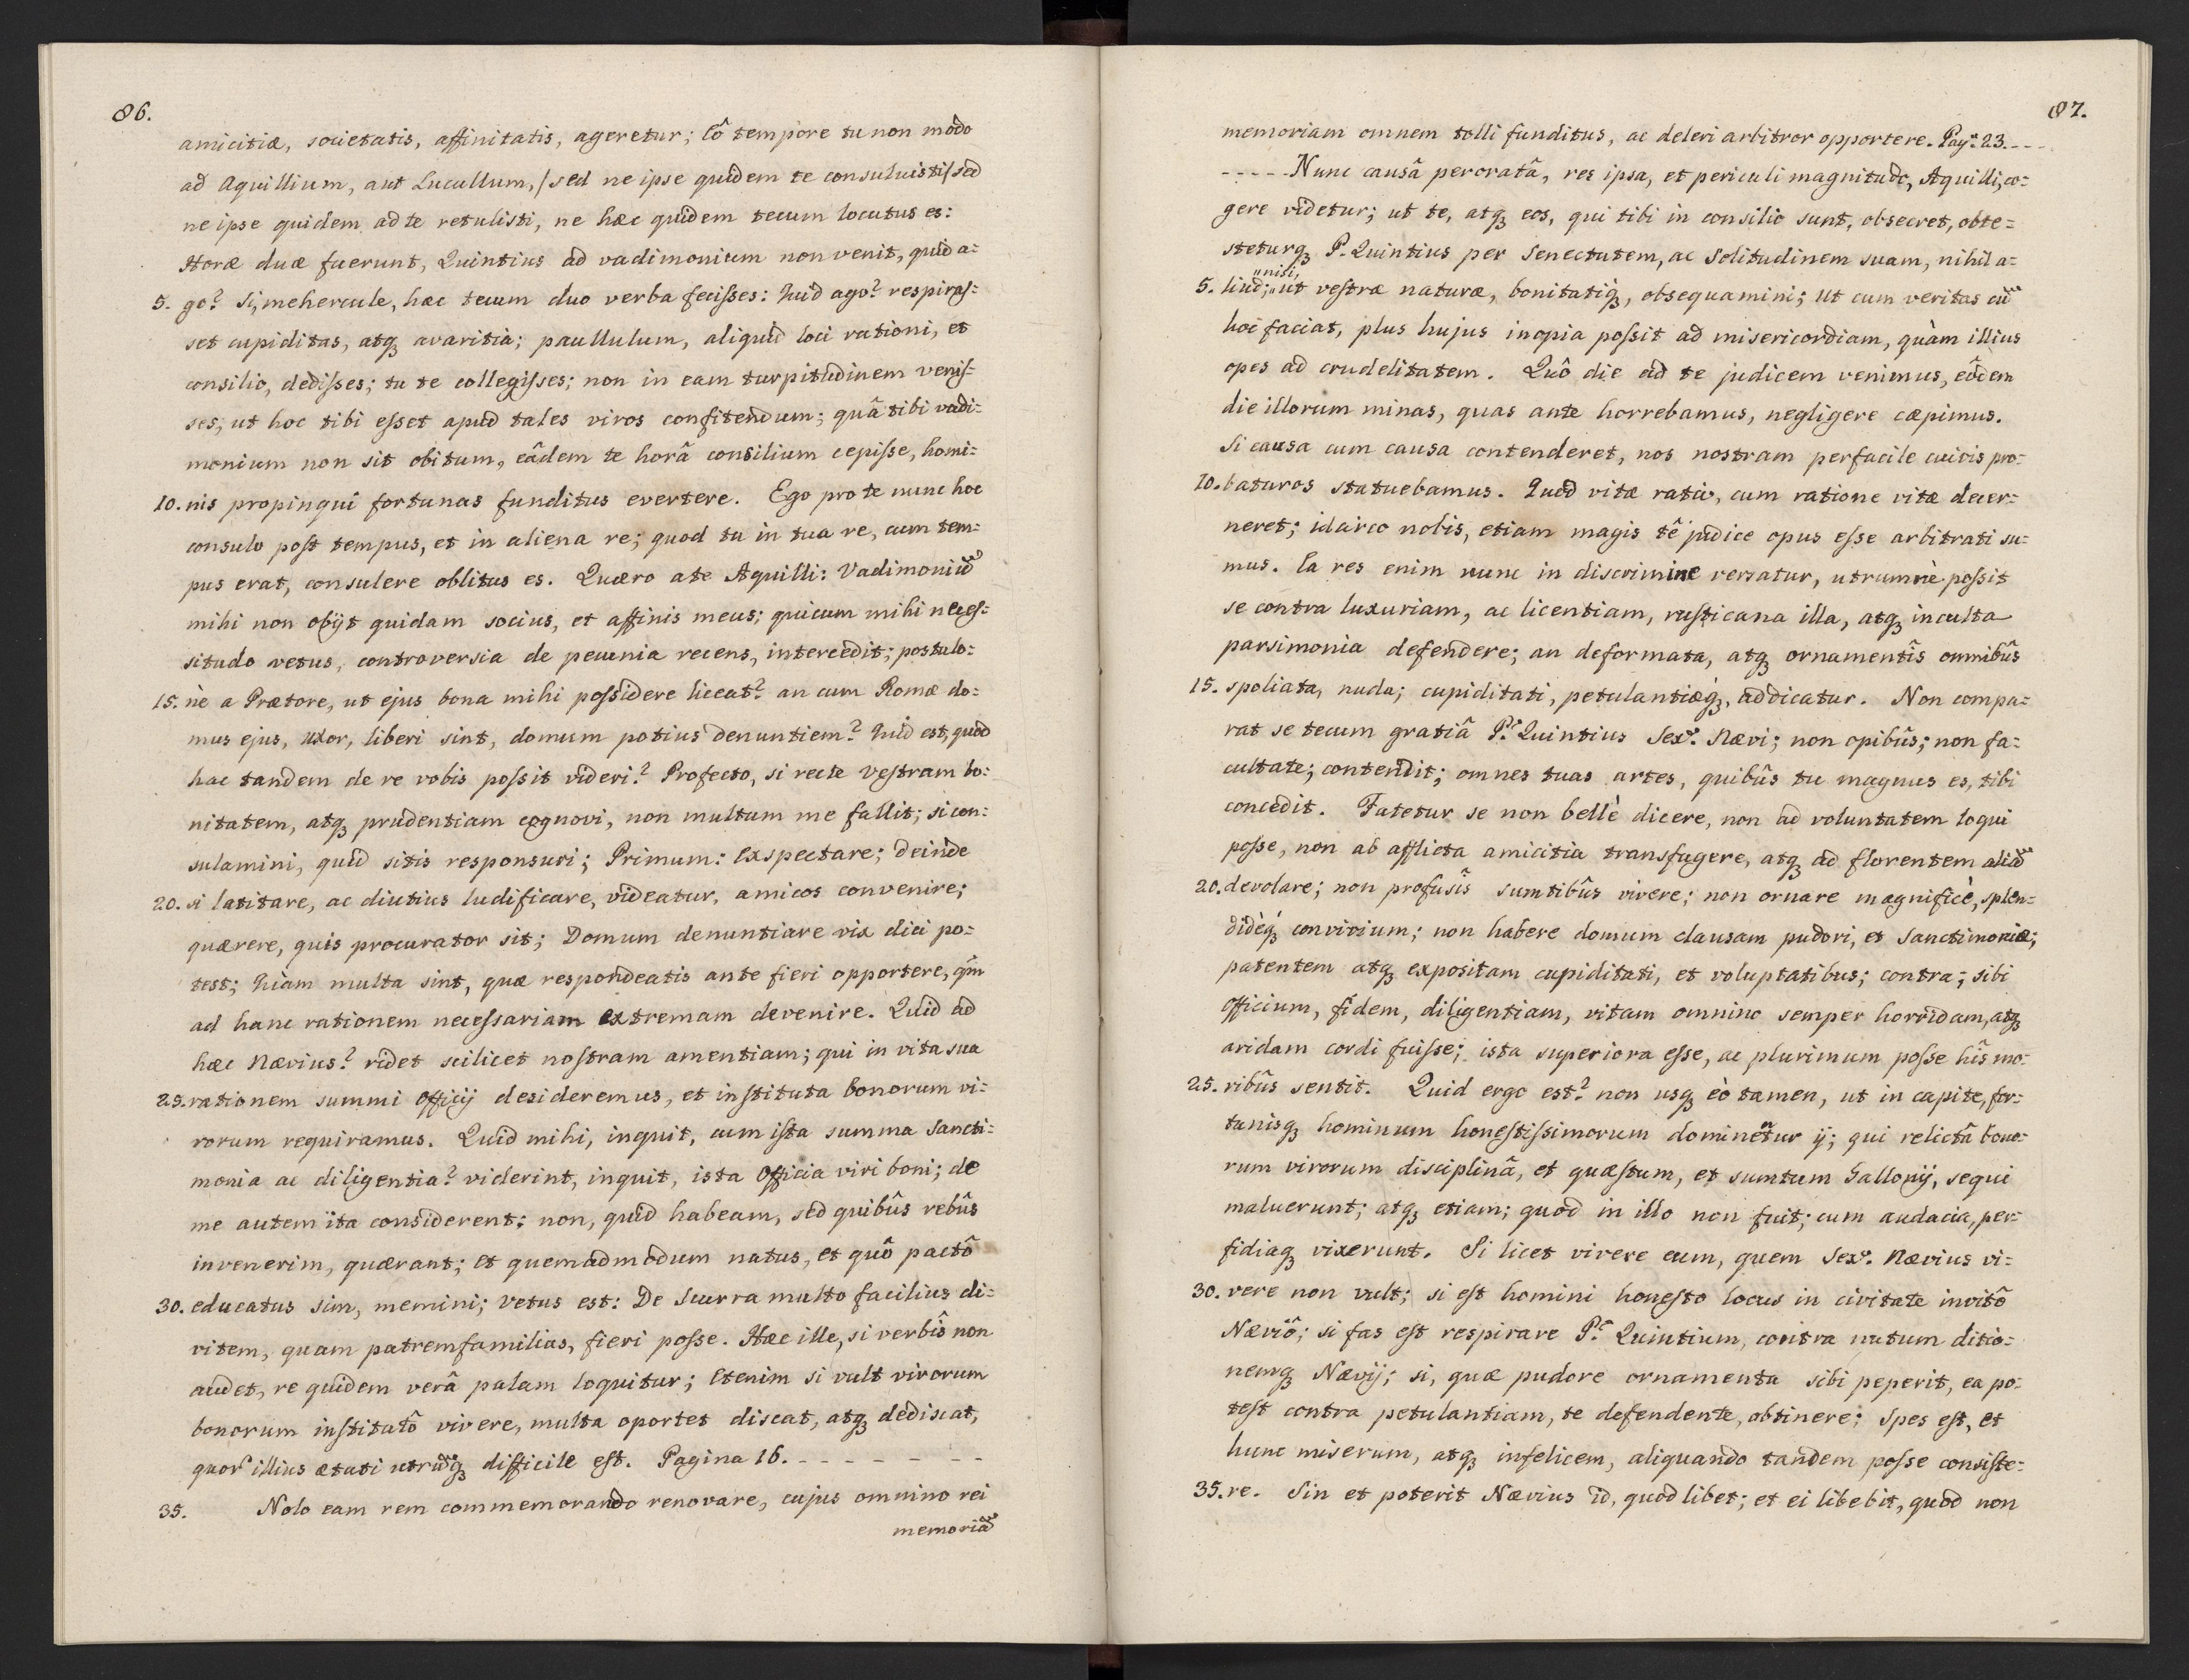 86.
amicitiæ, societatis, affinitatis, ageretur; Eô tempore tu non modo
ad Aquillium, aut Lucullum, /sed ne ipse quidem te consuluisti/ sed
ne ipse quidem ad te retulisti, ne hæc quidem tecum locutus es:
Horæ duæ fuerunt, Quintius ad vadimonium non venit, quid a=
5. go? Si, mehercule, hæc tecum duo verba feciſses: Quid ago? respiraſ=
set cupiditas, atqȝ avaritia; paullulum, aliquid loci rationi, et
consilio, dediſses; tu te collegiſses; non in eam turpitudinem veniſ=
ses; ut hoc tibi eſset apud tales viros confitendum; quâ tibi vadi=
monium non sit obitum, eâdem te horâ consilium cepiſse, homi=
10. nis propinqui fortunas funditus evertere. Ego pro te nunc hoc
consulo poſt tempus, et in aliena re; quod tu in tua re, cum tem=
pus erat, consulere oblitus es. Quæro a te Aquilli: Vadimoniũ
mihi non obijt quidam socius, et affinis meus; quicum mihi neceſ=
situdo vetus, controversia de pecunia recens, intercedit; postulo=
15. nè a Prætore, ut ejus bona mihi poſsidere liceat? an cum Romæ do=
mus ejus, uxor, liberi sint, domum potius denuntiem? Quid est, quod
hac tandem de re vobis poſsit videri? Profecto, si recte veſtram bo=
nitatem, atqȝ prudentiam cognovi, non multum me fallit; si con=
sulamini, quid sitis responsuri; Primum: exspectare; deinde
20. si latitare, ac diutius ludificare, videatur, amicos convenire;
quærere, quis procurator sit; Domum denuntiare vix dici po=
test; Quàm multa sint, quæ respondeatis ante fieri opportere, qm̃
ad hanc rationem neceſsariam extremam devenire. Quid ad
hæc Nævius? ridet scilicet noſtram amentiam; qui in vita sua
25. rationem summi officij desideremus, et inſtituta bonorum vi=
rorum requiramus. Quid mihi, inquit, cum iſta summa sancti=
monia ac diligentia? viderint, inquit, ista officia viri boni; de
me autem ita considerent: non, quid habeam, sed quibûs rebûs
invenerim, quærant; et quemadmodum natus, et quô pactô
30. educatus sim, memini; vetus est: De scurra multo facilius di=
vitem, quam patremfamilias, fieri poſse. Hæc ille, si verbîs non
audet, re quidem verâ palam loquitur; Etenim si vult virorum
bonorum inſtitutô vivere, multa oportet discat, atqȝ dediscat,
quorͫ illius ætati utrũqȝ difficile eſt. Pagina 16. - - - - - - -
35. Nolo eam rem commemorando renovare, cujus omnino rei
memoriã
87.
memoriam omnem tolli funditus, ac deleri arbitror opportere. Pag.ª 23. - - -
- - - - - Nunc causâ peroratâ, res ipsa, et periculi magnitudo, Aquilli, co=
gere videtur; ut te, atqȝ eos, qui tibi in consilio sunt, obsecret, obte=
steturqȝ P. Quintius per senectutem, ac solitudinem suam, nihil a=
"nisi,
5. liud; "ut veſtræ naturæ, bonitatiqȝ, obsequamini; ut cum veritas cũ
hoc faciat, plus hujus inopia poſsit ad misericordiam, quàm illius
opes ad crudelitatem. Quô die ad te judicem venimus, eôdem
die illorum minas, quas ante horrebamus, negligere cæpimus.
Si causa cum causa contenderet, nos nostram perfacile cuivis pro=
10. baturos statuebamus. Quod vitæ ratio, cum ratione vitæ decer=
neret; idcirco nobis, etiam magis tê judice opus eſse arbitrati su=
mus. Ea res enim nunc in discrimine versatur, utrumnè poſsit
se contra luxuriam, ac licentiam, ruſticana illa, atqȝ inculta
parsimonia defendere; an deformata, atqȝ ornamentîs omnibûs
15. spoliata, nuda; cupiditati, petulantiæqȝ, addicatur. Non compa=
rat se tecum gratiâ P.ˢ Quintius Sex.ᵉ Nævi; non opibûs; non fa=
cultate; contendit; omnes tuas artes, quibûs tu magnus es, tibi
concedit. Fatetur se non bellè dicere, non ad voluntatem loqui
poſse, non ab afflicta amicitia transfugere, atqȝ ad florentem aliã
20. devolare; non profusîs sumtibûs vivere; non ornare magnificè, splen=
didèqȝ convivium; non habere domum clausam pudori, et sanctimoniæ;
patentem atqȝ expositam cupiditati, et voluptatibus; contra; sibi
officium, fidem, diligentiam, vitam omnino semper horridam, atqȝ
aridam cordi fuiſse; ista superiora eſse, ac plurimum poſse hîs mo=
25. ribûs sentit. Quid ergo est? non usqȝ eò tamen, ut in capite, for=
tunisqȝ hominum honeſtiſsimorum dominentur ij; qui relictâ bono=
rum virorum disciplinâ, et quæſtum, et sumtum Gallonij, sequi
maluerunt; atqȝ etiam; quod in illo non fuit; cum audacia, per=
fidiaqȝ vixerunt. Si licet vivere eum, quem Sex.ˢ Nævius vi=
30. vere non vult; si eſt homini honeſto locus in civitate invitô
Næviô; si fas eſt respirare P.ᵐ Quintium, contra nutum ditio=
nemqȝ Nævij; si, quæ pudore ornamenta sibi peperit, ea po=
teſt contra petulantiam, te defendente, obtinere; spes eſt, et
hunc miserum, atqȝ infelicem, aliquando tandem poſse consiſte=
35. re. Sin et poterit Nævius id, quod libet; et ei libebit, quod non